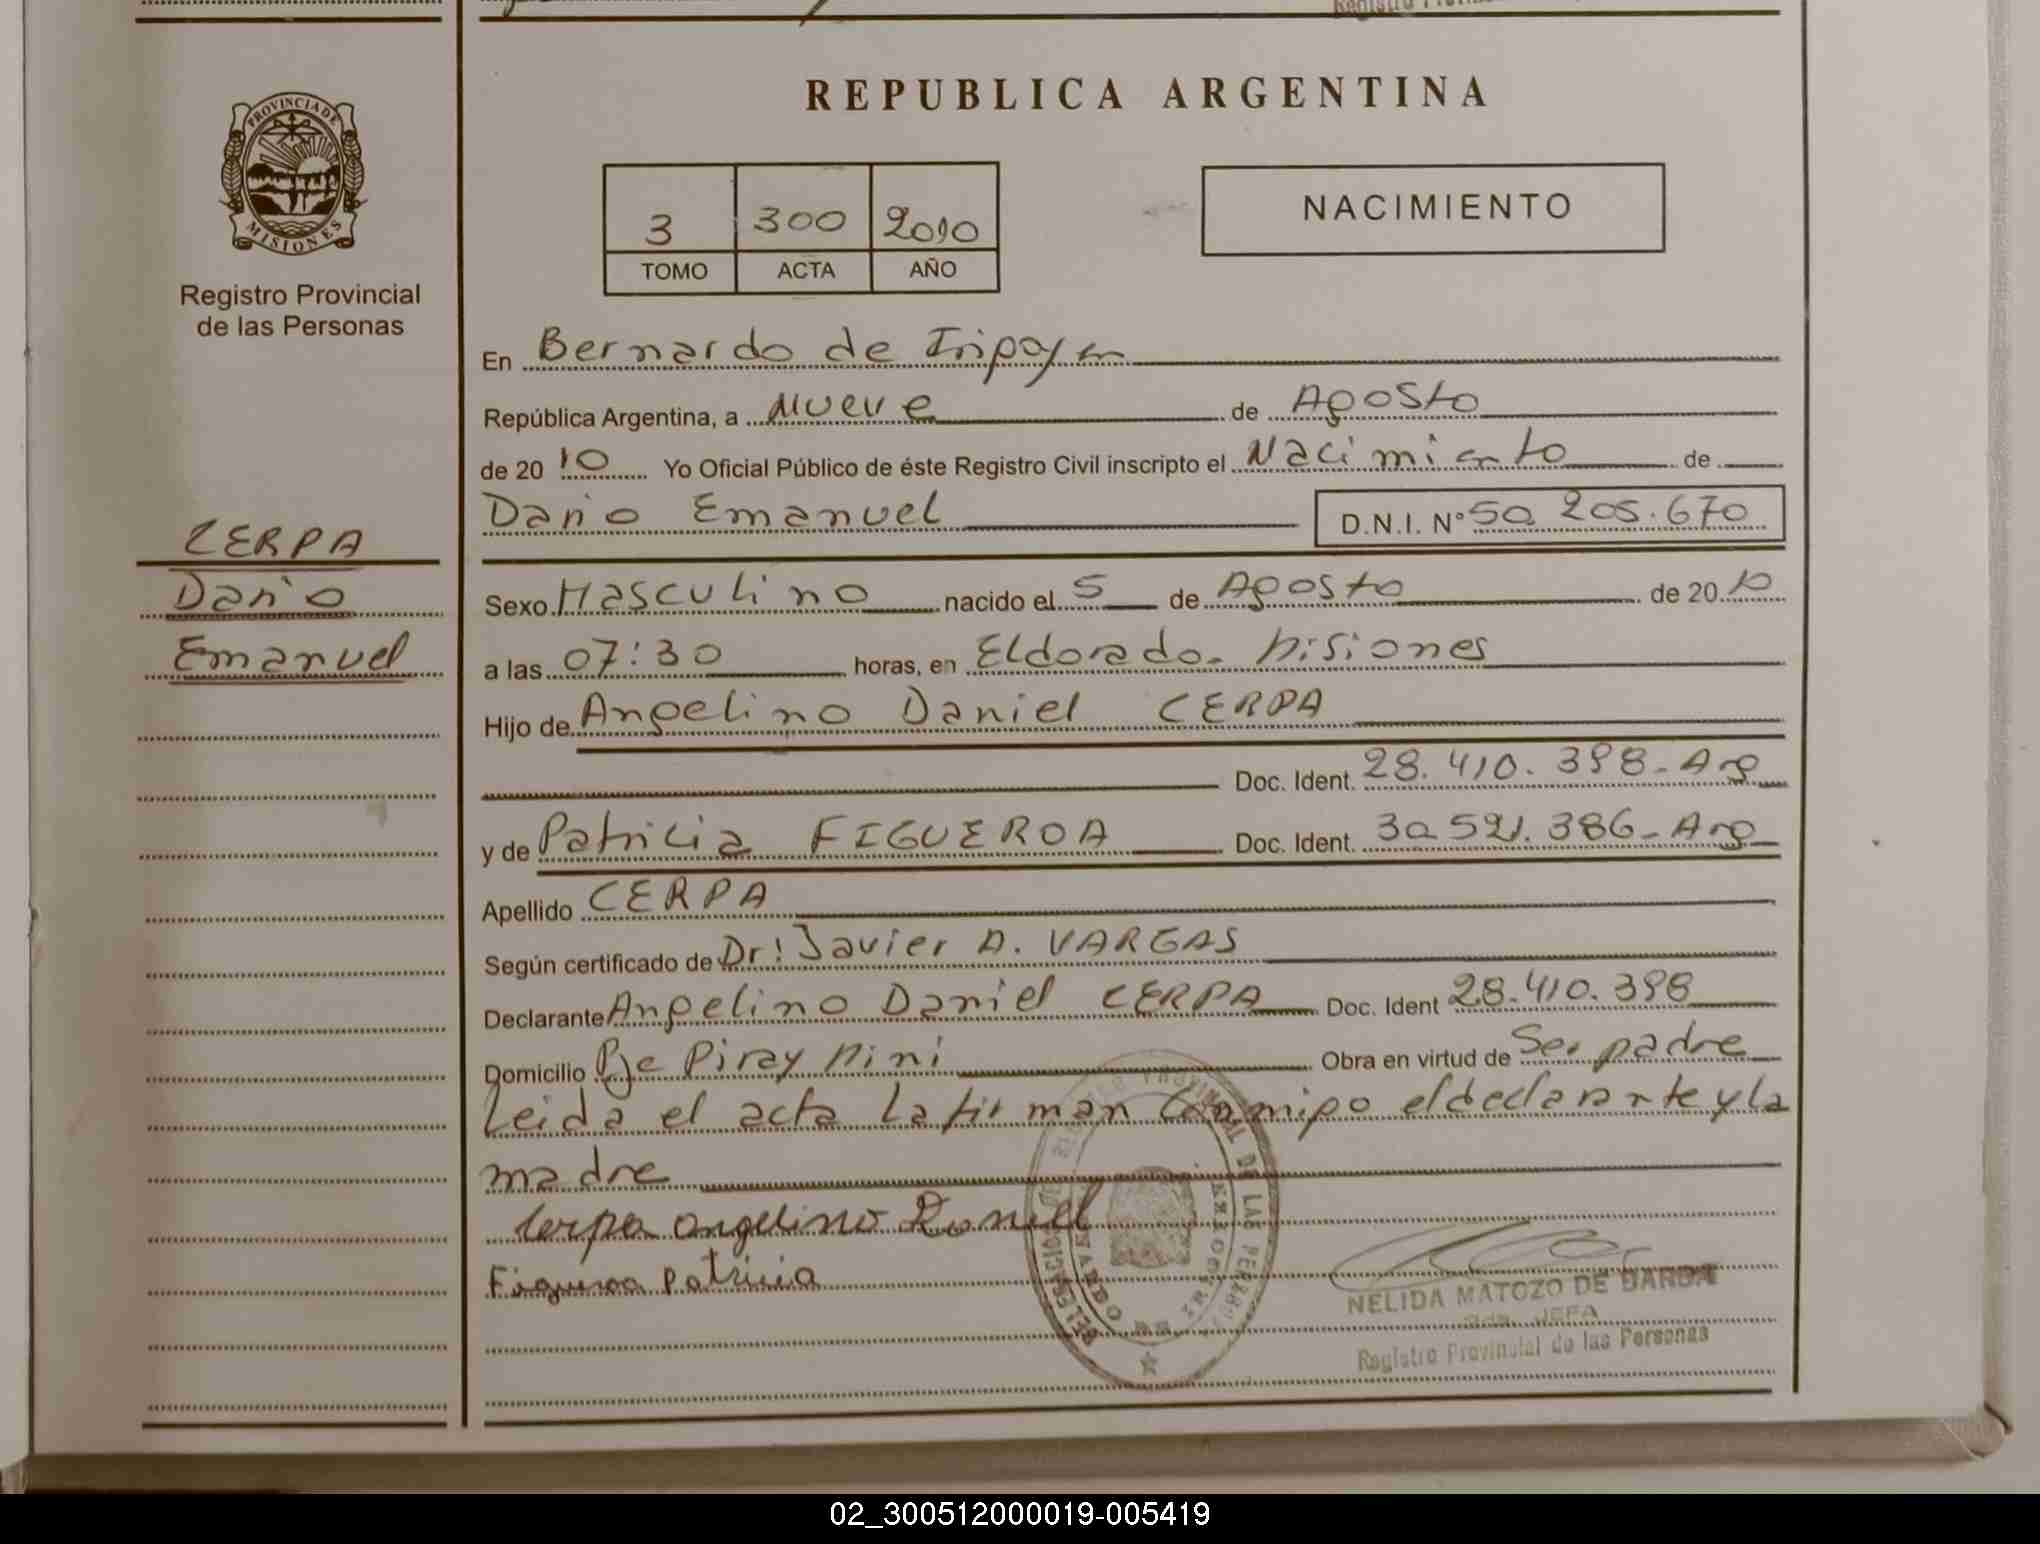 REPUBLICA ARGENTINA
PROVINCIA DE
MISIONES
Registro Provincial
de las Personas
3 300 2010
TOMO ACTA AÑO
NACIMIENTO
En Bernardo de Iripoyen
República Argentina, a Nueve de Agosto
de 20 10 Yo Oficial Público de éste Registro Civil inscripto el Nacimiento de
Dario Emanuel D.N.I. N° 50.205.670
CERPA
Dario
Emanuel
Sexo Masculino nacido el 5 de Agosto de 20 10
a las 07:30 horas, en Eldorado - Misiones
Hijo de Angelino Daniel CERPA
Doc. Ident. 28.410.398 - Arg
y de Patricia FIGUEROA Doc. Ident. 30.521.386 - Arg
Apellido CERPA
Según certificado de Dr: Javier A. VARGAS
Declarante Angelino Daniel CERPA Doc. Ident 28.410.398
Domicilio Pje Piray Mini Obra en virtud de Ser padre
Leida el acta La firman Conmigo el declarante y la
madre
Cerpa Angelino Daniel
Figueroa Patricia
NELIDA MATOZO DE
JEFA
Registro Provincial de las Personas
02_300512000019-005419